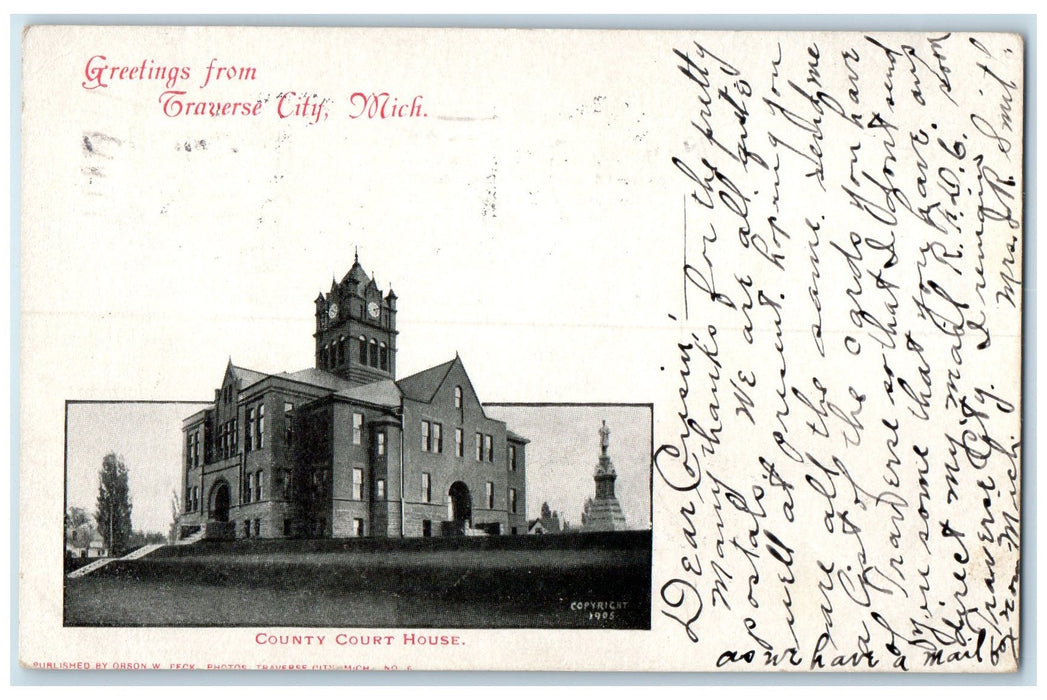 Greetings from
Traverse City, Mich.
COPYRIGHT
1905
COUNTY COURT HOUSE.
PUBLISHED BY ORSON W. PECK, PHOTOS, TRAVERSE CITY, MICH. NO. 6
Dear Cousin,
Many thanks for the pretty
postals. We are all quite
well at present. hoping you
are all the same. send me
a list of the cards you have
of Traverse so that I dont send
you some that you have. ans soon
direct my mail R.
Traverse City. I remain
from Mich Mrs. J R. Smith
as we have a mail